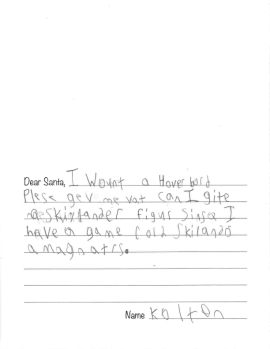 Dear Santa, I Wount a Hover bord
Plese gev me vat can I gite
a Skixlander figus Sinse I
have a game cold Skilands
a magnatrs.
Name Kolton